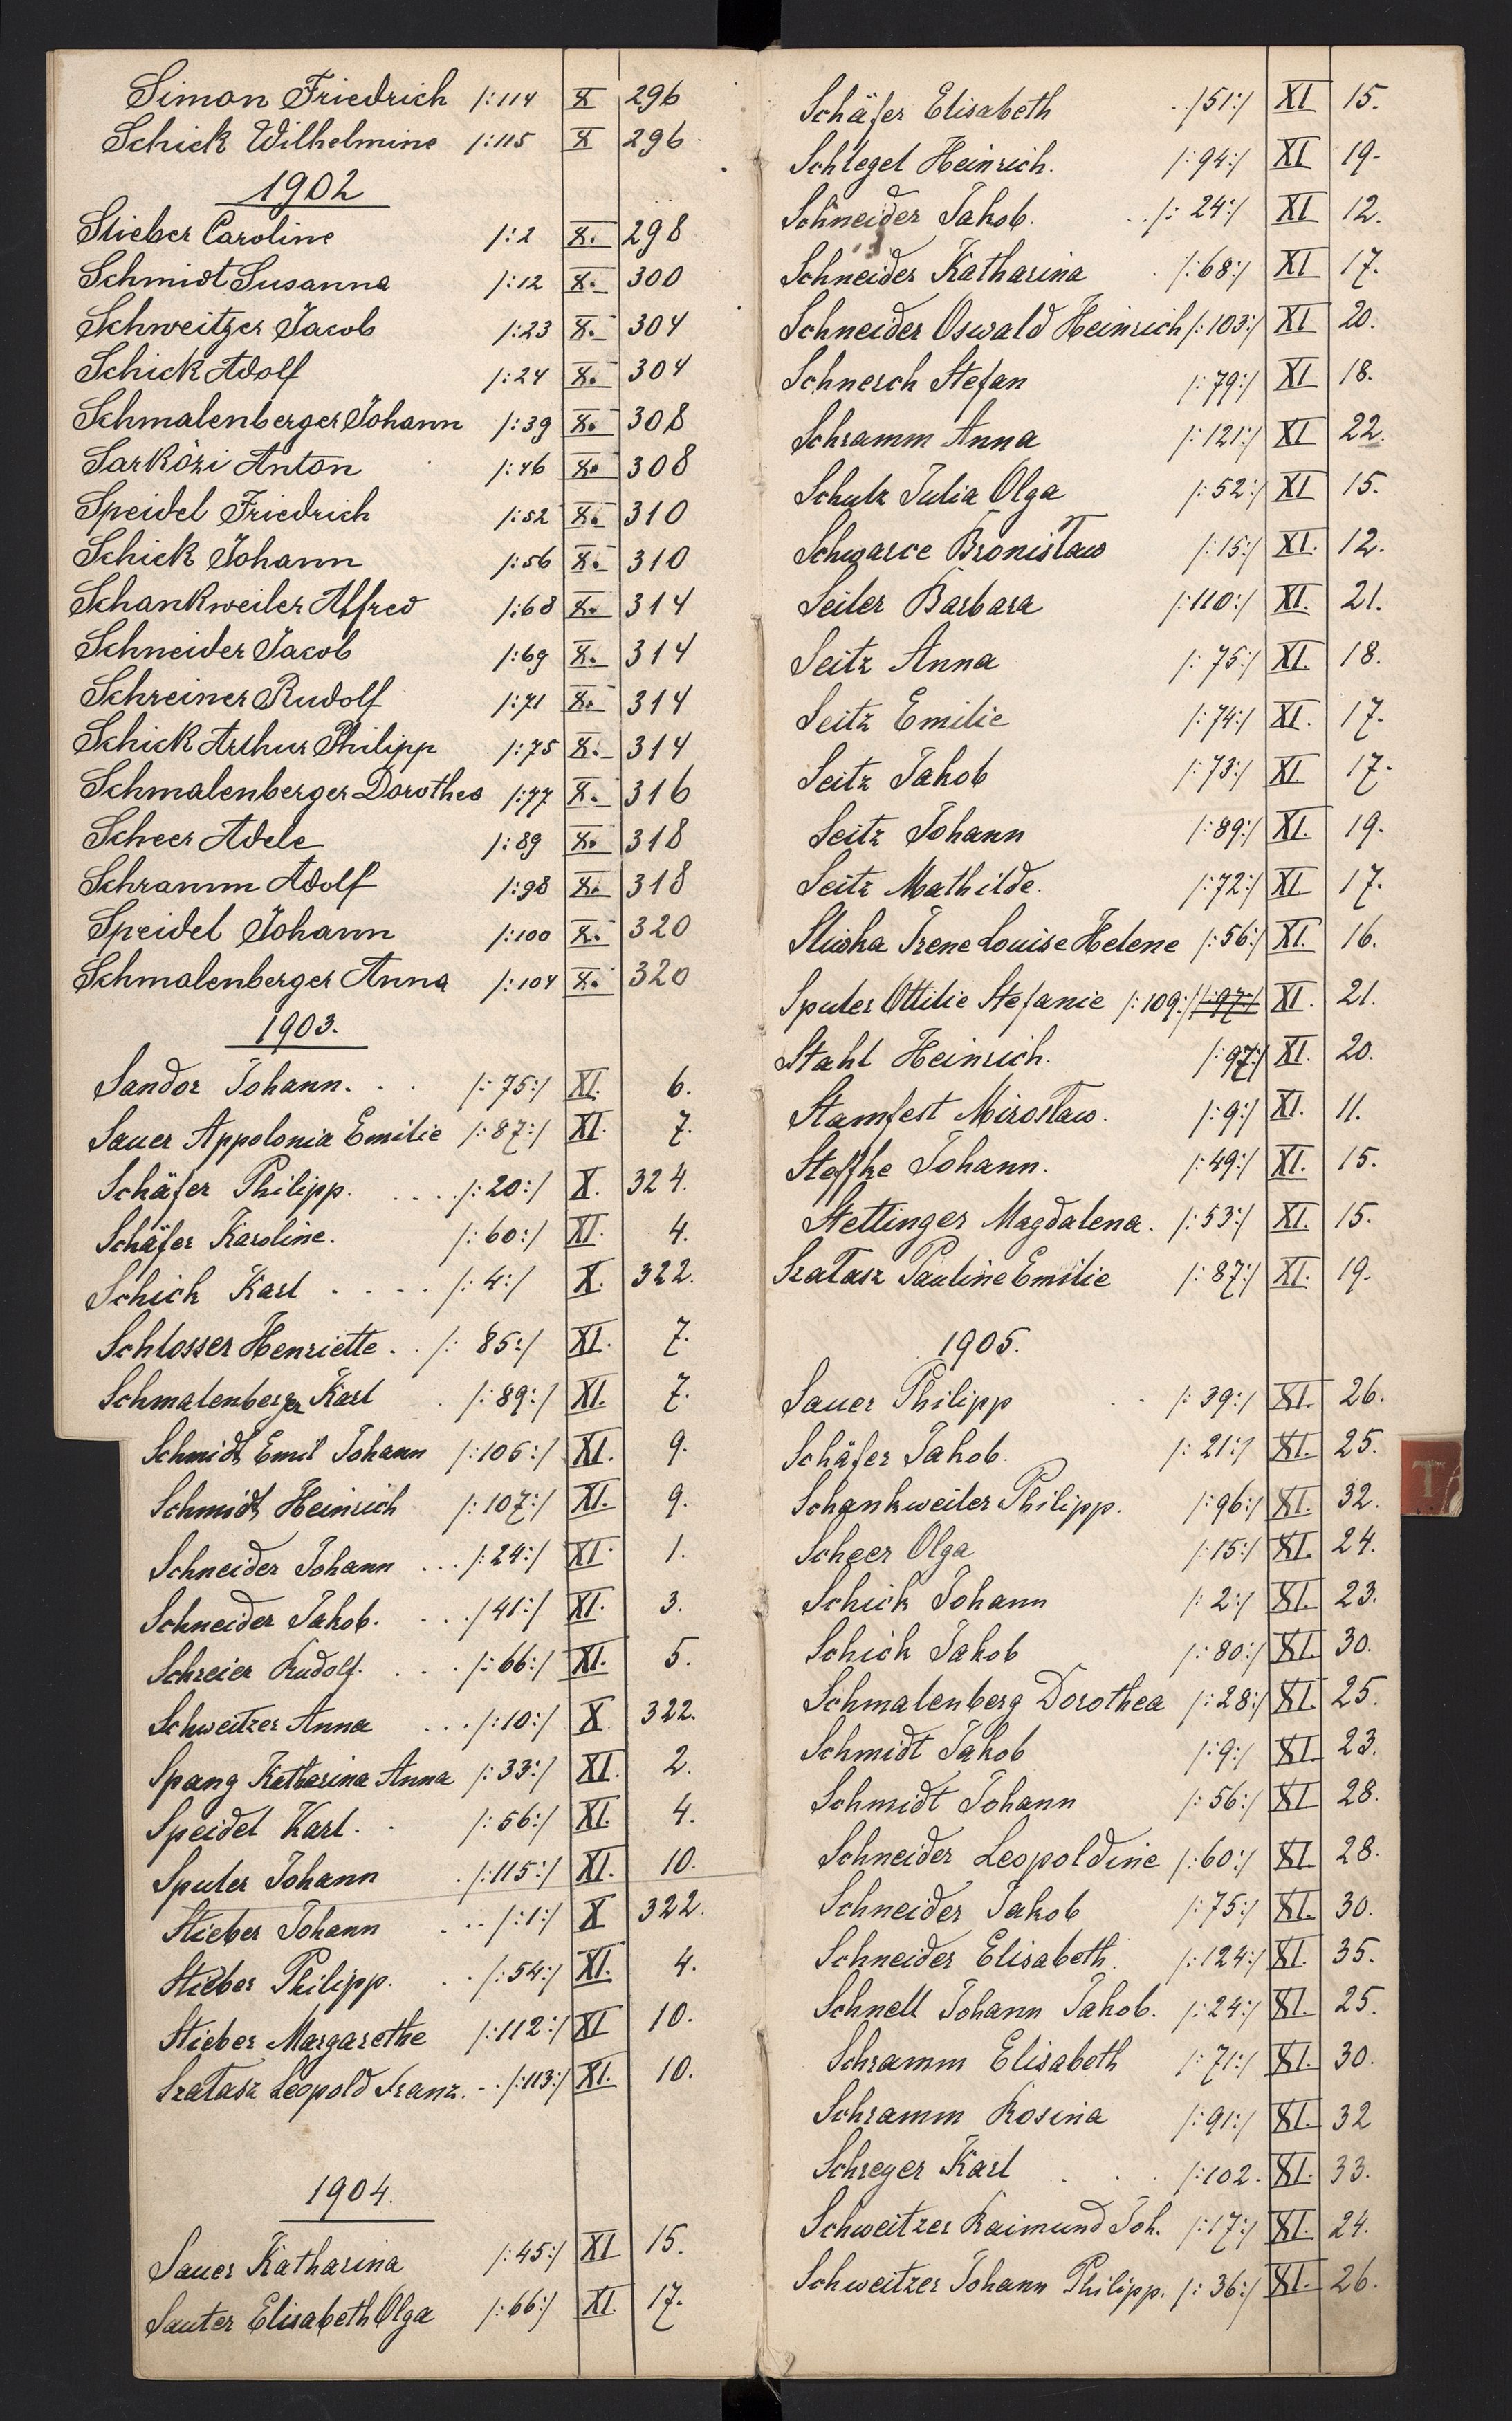 Simon Friedrich /:114 X 296
Schick Wilhelmine /:115 X 296
1902
Stieber Caroline /:2 X. 298
Schmidt Susanna /:12 X. 300
Schweitzer Jacob /:23 X. 304
Schick Adolf /:24 X. 304
Schmalenberger Johann /:39 X. 308
Sarközi Anton /:46 X. 308
Speidel Friedrich /:52 X. 310
Schick Johann /:56 X. 310
Schankweiler Alfred /:68 X. 314
Schneider Jacob /:69 X. 314
Schreiner Rudolf /:71 X. 314
Schick Arthur Philipp /:75 X. 314
Schmalenberger Dorothea /:77 X. 316
Scheer Adele /:89 X. 318
Schramm Adolf /:98 X. 318
Speidel Johann /:100 X. 320
Schmalenberger Anna /:104 X. 320
1903.
Sandor Johann. . . /:75:/ XI. 6.
Sauer Appolonia Emilie /:87:/ XI. 7.
Schäfer Philipp. . . . . /:20:/ X. 324.
Schäfer Karoline. /:60:/ XI. 4.
Schick Karl . . . . /:4:/ X. 322.
Schlosser Henriette . . /: 85:/ XI. 7.
Schmalenberger Karl . /:89:/ XI. 7.
Schmidt Emil Johann /:106:/ XI. 9.
Schmidt Heinrich /:107:/ XI. 9.
Schneider Johann . . . /:24:/ XI. 1.
Schneider Jakob. . . . /41:/ XI. 3.
Schreier Rudolf. . . . /:66:/ XI. 5.
Schweitzer Anna . . . /:10:/ X. 322.
Spang Katharina Anna /:33:/ XI. 2.
Speidel Karl. . /:56:/ XI. 4.
Sputer Johann . /:115:/ XI. 10.
Stieber Johann . . . /:1:/ X 322.
Stieber Philipp. . . /:54:/ XI. 4.
Stieber Margarethe /:112:/ XI 10.
Szałasz Leopold Franz. . . /:113:/ XI. 10.
1904.
Sauer Katharina /:45:/ XI 15.
Sauter Elisabeth Olga /:66:/ XI. 17.
Schäfer Elisabeth . ./51:/ XI 15.
Schlegel Heinrich. /:94:/ XI 19.
Schneider Jakob. . . /: 24:/ XI 12.
Schneider Katharina . /:68:/ XI 17.
Schneider Oswald Heinrich /:103:/ XI 20.
Schnerch Stefan /:79:/ XI 18.
Schramm Anna /:121:/ XI 22.
Schulz Julia Olga /:52:/ XI 15.
Schwarce Bronisław /:15:/ XI. 12.
Seiler Barbara /:110:/ XI. 21.
Seitz Anna /:75:/ XI. 18.
Seitz Emilie /:74:/ XI. 17.
Seitz Jakob /:73:/ XI 17.
Seitz Johann /:89:/ XI. 19.
Seitz Mathilde. /:72:/ XI 17.
Irene Louise Helene /:56:/ XI. 16.
Sputer Ottilie Stefanie /:109:/ /:97:/ XI. 21.
Stahl Heinrich. /:97:/ XI. 20.
Stamfest Mirosław. /:9:/ XI. 11.
Steffke Johann. /:49:/ XI. 15.
Stettinger Magdalena. /:53:/ XI. 15.
Szałasz Pauline Emilie /:87:/ XI. 19.
1905.
Sauer Philipp . . /: 39:/ XI. 26.
Schäfer Jakob. /: 21:/ XI. 25.
Schankweiler Philipp. /:96:/ XI. 32.
Scheer Olga /:15:/ XI. 24.
Schick Johann /: 2:/ XI. 23.
Schick Jakob /:80:/ XI. 30.
Schmalenberg Dorothea /:28:/ XI. 25.
Schmidt Jakob /:9:/ XI 23.
Schmidt Johann /:56:/ XI 28.
Schneider Leopoldine /:60:/ XI. 28.
Schneider Jakob /:75:/ XI. 30.
Schneider Elisabeth. /:124:/ XI. 35.
Schnell Johann Jakob. /:24:/ XI. 25.
Schramm Elisabeth /:71:/ XI. 30.
Schramm Rosina /:91:/ XI. 32
Schreyer Karl . . . /:102. XI. 33.
Schweitzer Raimund Joh. /:17:/ XI. 24.
Schweitzer Johann Philipp. /: 36:/ XI. 26.
T